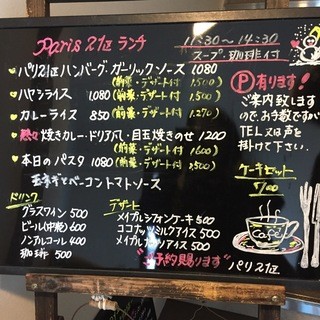 Paris 21区 ランチ
11:30〜14:30
スープ・珈琲付
パリ21区ハンバーグ・ガーリックソース 1080
(前菜・デザート付 1,500)
ハヤシライス 1080 (前菜・デザート付 1,500)
カレーライス 850 (前菜・デザート付 1,270)
熱々 焼きカレー・ドリア風・目玉焼きのせ 1200
(前菜・デザート付 1,600)
本日のパスタ 1080 (前菜・デザート付 1,500)
玉ネギとベーコントマトソース
ドリンク
グラスワイン 500
ビール(中瓶) 600
ノンアルコール 400
珈琲 500
デザート
メイプルシフォンケーキ 500
ココナッツミルクアイス 500
メイプルアイス 500
"ご予約賜ります" パリ21区
P 有ります!
ご案内致します
ので、お手数ですが
TEL又は声を
掛けて下さい。
ケーキセット
700
Café